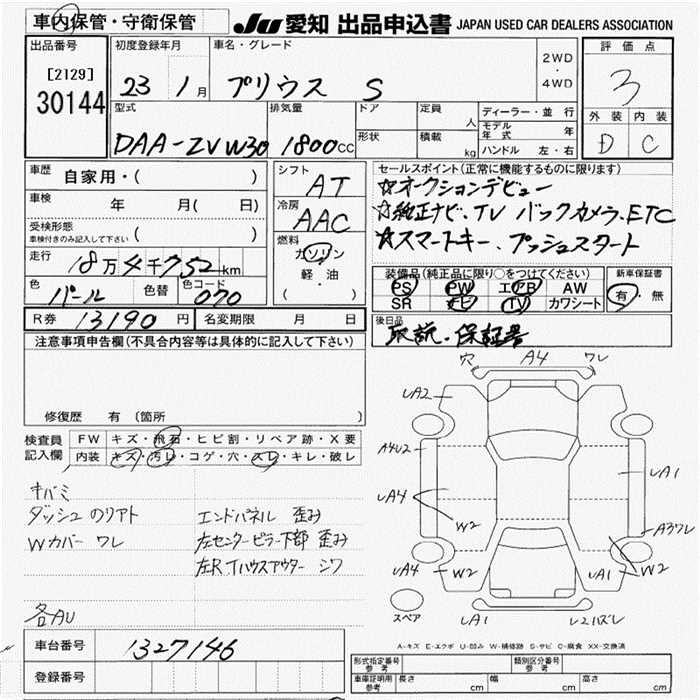 車内保管・守衛保管
JU 愛知 出品申込書 JAPAN USED CAR DEALERS ASSOCIATION
出品番号
[2129]
30144
初度登録年月
23 1月
車名・グレード
プリウス S
2WD
・
4WD
評価点
3
外装 内装
D C
型式
DAA-ZVW30
排気量
1800CC
ドア
形状
定員
人
積載
kg
ディーラー・並行
モデル年式 年
ハンドル 左・右
車歴
自家用・( )
車検
年 月( 日)
受検形態
車検付きのみ記入して下さい ( )
走行
18万4千752km
色
パール
色替
色コード
070
シフト
AT
冷房
AAC
燃料
ガソリン
軽・油
( )
セールスポイント(正常に機能するものに限ります)
☆オークションデビュー
☆純正ナビ、TV バックカメラ、ETC
☆スマートキー、プッシュスタート
装備品(純正品に限り○をつけてください)
PS PW エアB AW
SR ナビ TV カワシート
新車保証書
有・無
R券 13190円
名変期限 月 日
後日品
取説・保証書
注意事項申告欄(不具合内容等は具体的に記入して下さい)
修復歴 有(箇所 )
検査員
記入欄
FW キズ・飛石・ヒビ割・リペア跡・X要
内装 キズ・汚レ・コゲ・穴・スレ・キレ・破レ
キバミ
ダッシュのリアト
Wカバー ワレ
エンドパネル 歪み
左センターピラー下部 歪み
左Rインハウスアウター シワ
各AU
穴 A4 ワレ
UA2
A4U2
UA4
W2
UA1
A3ワレ
UA4 W2
UA1 W2
スペア
UA1
レンズズレ
A-キズ E-エクボ U-凹み W-補修跡 S-サビ C-腐食 XX-交換済
車台番号
1327146
登録番号
形式指定番号
参考
類別区分番号
参考
車庫証明用
参考
長さ cm
幅 cm
高さ cm